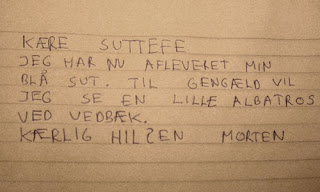 KÆRE SUTTEFE
JEG HAR NU AFLEVERET MIN
BLÅ SUT. TIL GENGÆLD VIL
JEG SE EN LILLE ALBATROS
VED VEDBÆK.
KÆRLIG HILSEN MORTEN